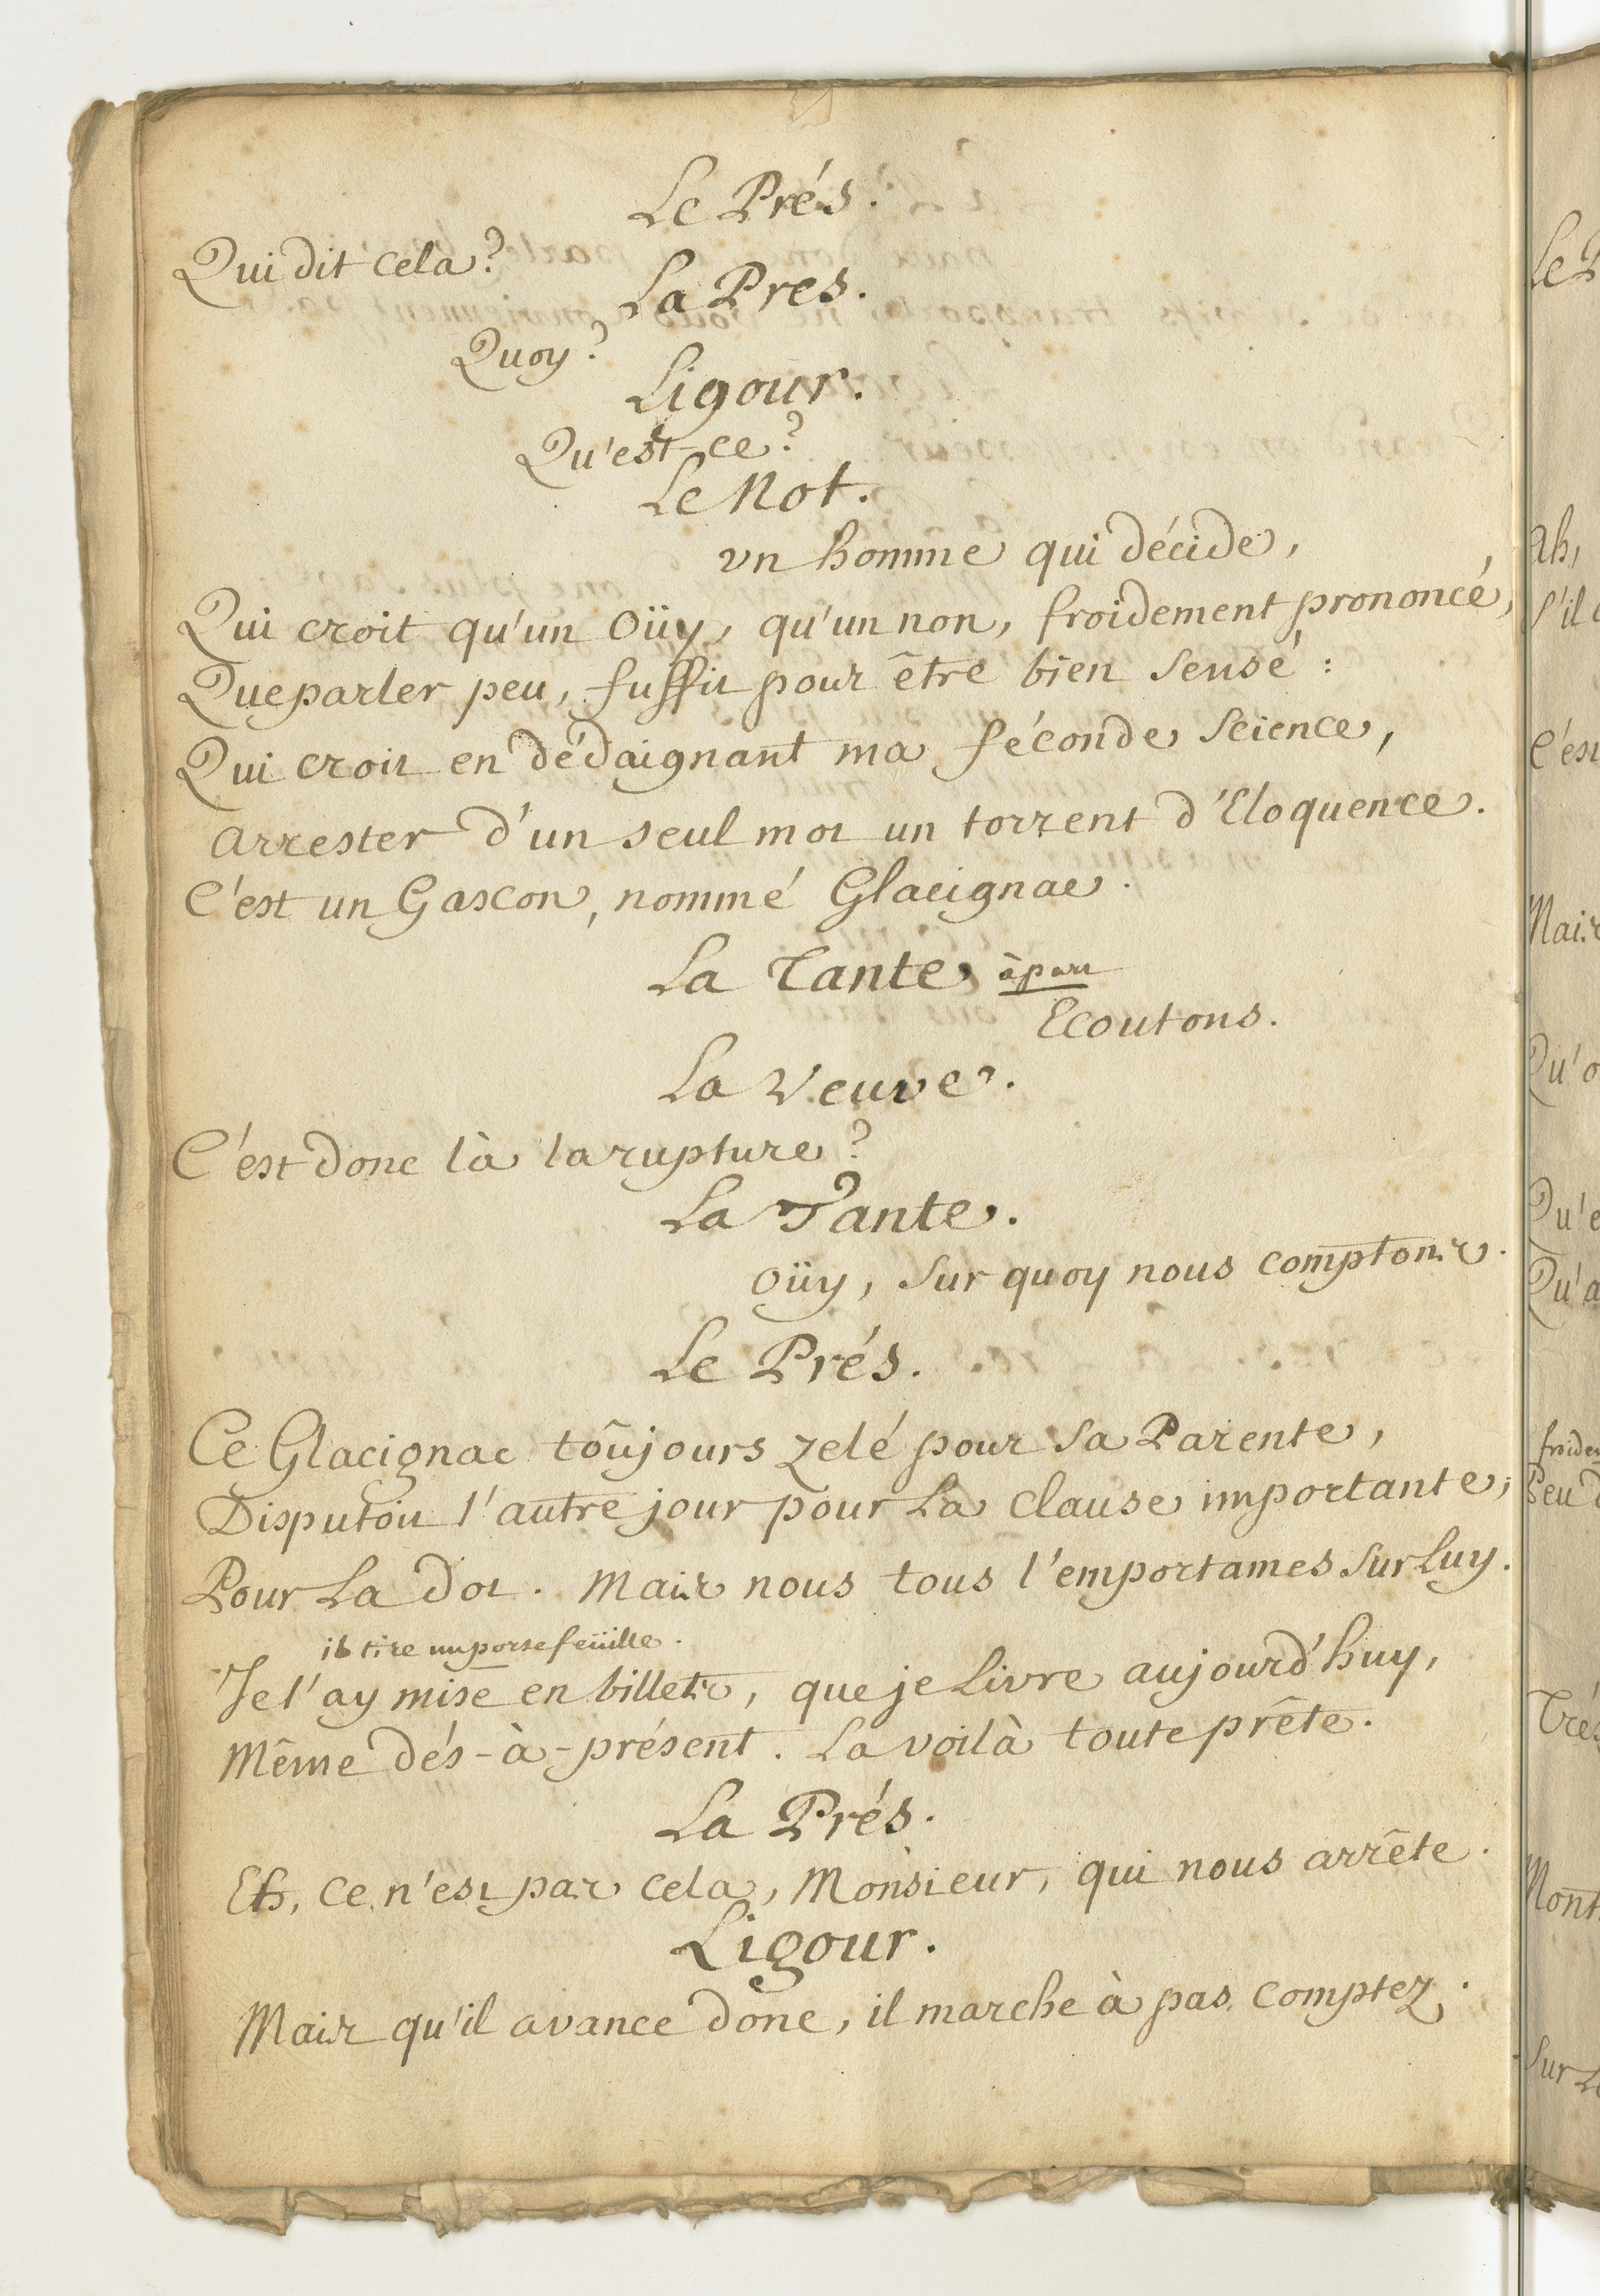 Le Prés.
Qui dit cela?
La Pres.
Quoy?
Ligour.
Qu'est-ce?
Le Not.
un homme qui décide,
Qui croit qu'un oüy, qu'un non, froidement prononcé,
Que parler peu, suffit pour être bien sensé :
Qui croit en dédaignant ma féconde science,
arrester d'un seul mot un torrent d'Eloquence.
C'est un Gascon, nommé Glacignac.
La Tante à part
Ecoutons.
La Veuve.
C'est donc là la rupture?
La Tante.
oüy, sur quoy nous comptons.
Le Prés.
Ce Glacignac toûjours zelé pour sa Parente,
Disputoit l'autre jour pour la clause importante,
Pour la dot. Mais nous tous l'emportames sur luy.
il tire un portefeüille.
Je l'ay mise en billets, que je livre aujourd'huy,
Même dés-à-présent. La voilà toute prête.
La Prés.
Eh, ce n'est pas cela, Monsieur, qui nous arrête.
Ligour.
Mais qu'il avance donc, il marche à pas comptez.
Le P
Ah,
S'il
C'est
Mais
Qu'o
Qu'e
Qu'a
Peu d
Trés
Mont
Sur L